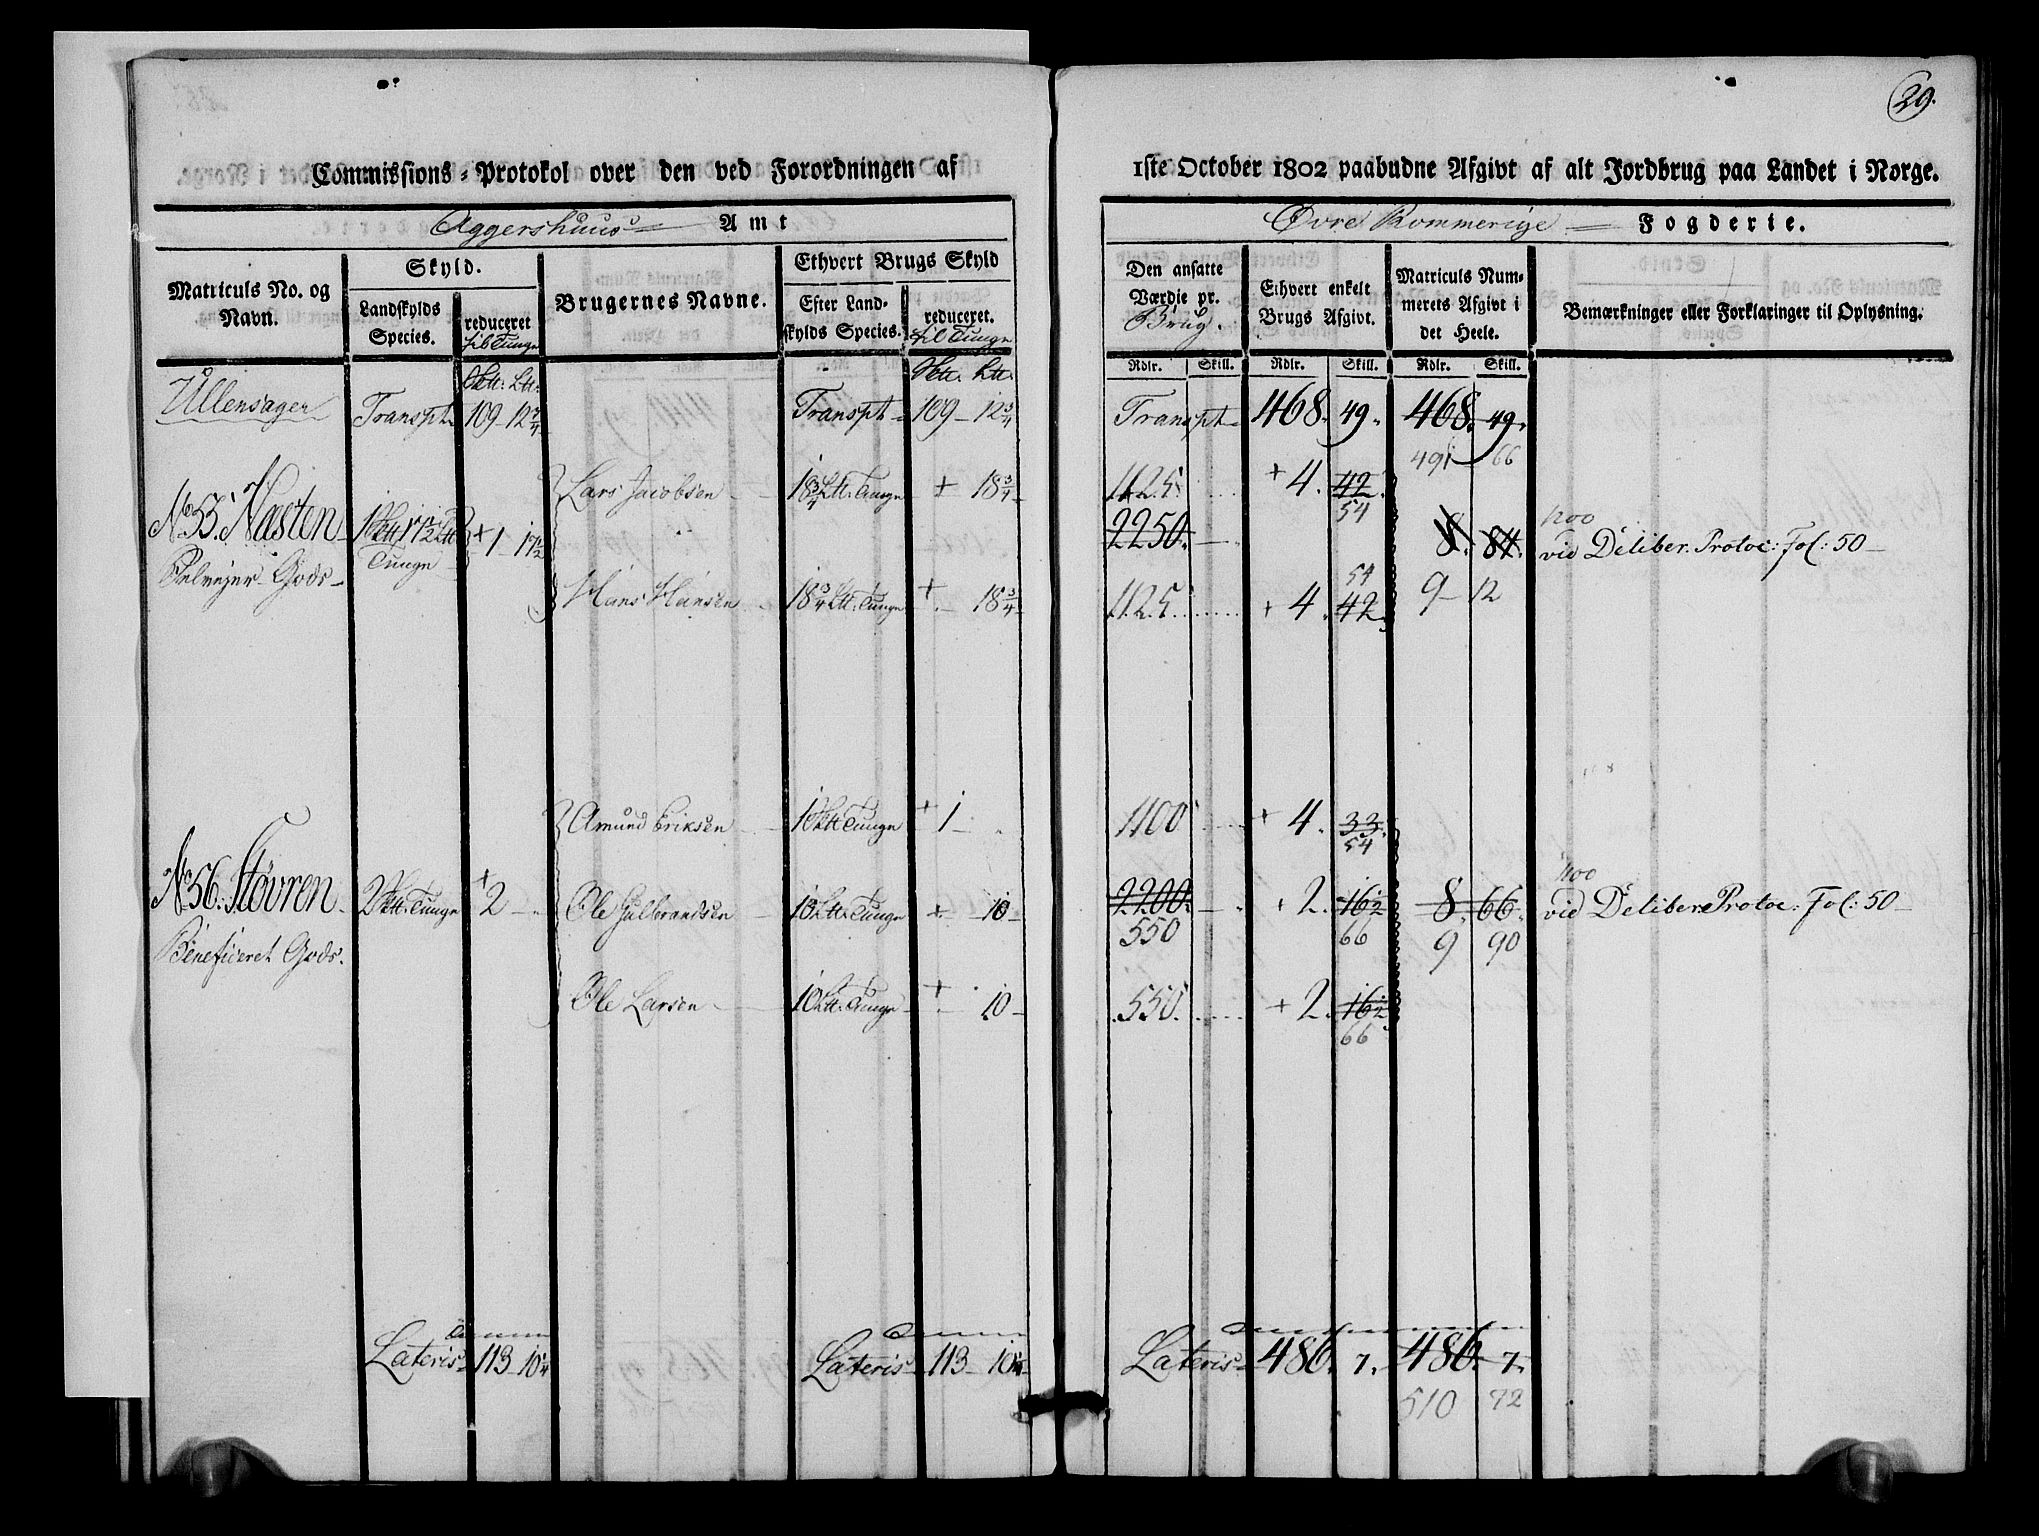 29.
Commissions-Protokol over den ved Forordningen af 1ste October 1802 paabudne Afgivt af alt Jordbrug paa Landet i Norge.
Aggershuus Amt Øvre Rommerige Fogderie.
Matriculs No. og Navn.
Skyld.
Landskylds Species.
reduceret til Tunge
Brugernes Navne.
Ethvert Brugs Skyld
Efter Landskylds Species.
reduceret. til Tunge
Den ansatte Værdie pr. Brug.
Ethvert enkelt Brugs Afgivt.
Matriculs Nummerets Afgivt i det Heele.
Bemærkninger eller Forklaringer til Oplysning.
Rdlr. Skill. Rdlr. Skill. Rdlr. Skill.
Ullensager Transpt 109 - 12 3/4 Transpt 109 - 12 3/4 Transpt 468. 49. 468. 49.
491 66
Lars Jacobsen 18 3/4 Ltt. Tunge + 18 3/4 1125 + 4. 42.
54
No 55. Nasten 1 17 1/2 Tunge + 1 - 17 1/2 2250. 8. 84. vid Deliber. Protoc: Fol: 50
Selvejer Gods
54
Hans Hansen 18 3/4 Ltt. Tunge + 18 3/4 1125 + 4. 42. 9 - 12
Amund Eriksen 1 Tunge + 1 1100 + 4. 33.
54
No 56. Støvren 2 Tunge + 2 Ole Gulbrandsen 10 Ltt. Tunge + 10 2200. + 2. 16 1/2 8. 66. vid Deliber. Protoc: Fol: 50
Beneficeret Gods. 550 66 9 90
Ole Larsen 10 Ltt. Tunge + 10 550. + 2. 16 1/2
66
Lateris 113 - 10 1/4 Lateris 113 - 10 1/4 Lateris 486. 7. 486. 7.
510 72